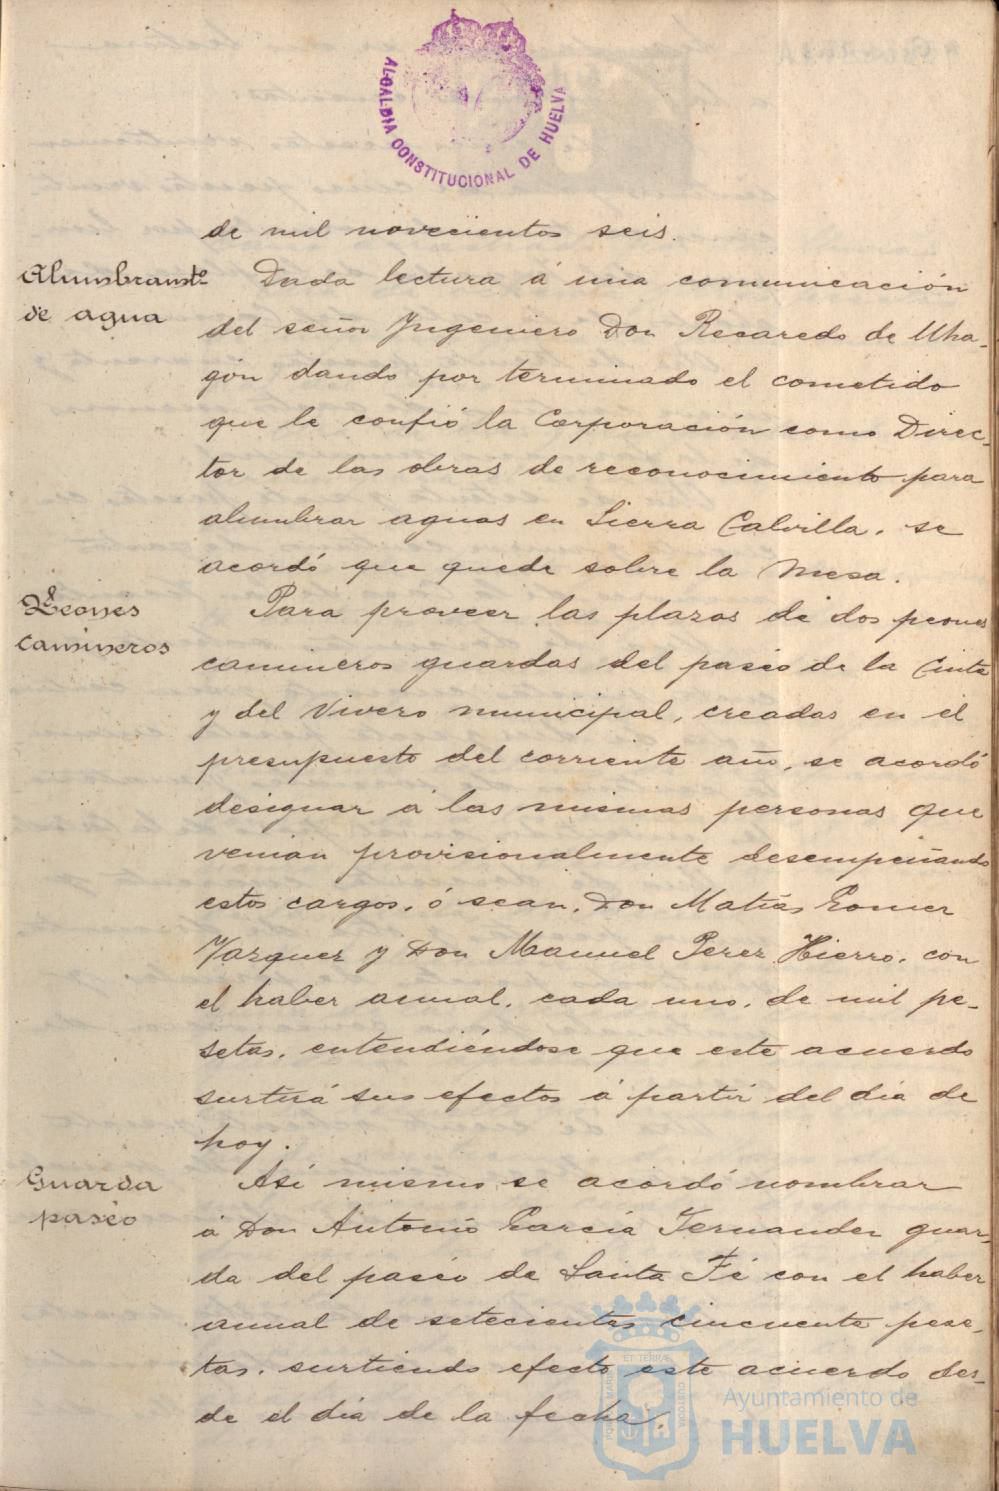 ALCALDIA CONSTITUCIONAL DE HUELVA
de mil novecientos seis.
Alumbramto
de agua
Dada lectura á una comunicación
del señor Ingeniero Don Recaredo de Uha-
gón dando por terminado el cometido
que le confió la Corporación como Direc-
tor de las obras de reconocimiento para
alumbrar aguas en Sierra Calvilla, se
acordó que quede sobre la Mesa.
Peones
camineros
Para proveer las plazas de dos peones
camineros guardas del paseo de la Cinta
y del Vivero municipal, creadas en el
presupuesto del corriente año, se acordó
designar á las mismas personas que
venian provisionalmente desempeñando
estos cargos, ó sean, Don Matías Gomez
Vazquez y Don Manuel Perez Hierro, con
el haber anual, cada uno, de mil pe-
setas, entendiéndose que este acuerdo
surtirá sus efectos á partir del dia de
hoy.
Guarda
paseo
Asi mismo se acordó nombrar
á Don Antonio García Fernandez guar-
da del paseo de Santa Fé con el haber
anual de setecientas cincuenta pese-
tas, surtiendo efecto este acuerdo des-
de el dia de la fecha.
Ayuntamiento de
HUELVA